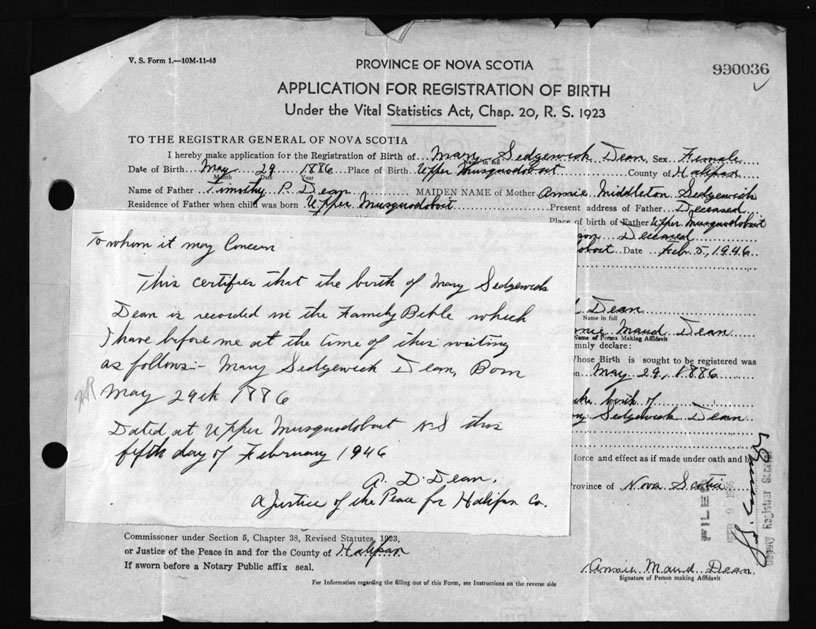 V. S. Form 1.—10M-11-43
PROVINCE OF NOVA SCOTIA
990036
APPLICATION FOR REGISTRATION OF BIRTH
Under the Vital Statistics Act, Chap. 20, R. S. 1923
TO THE REGISTRAR GENERAL OF NOVA SCOTIA
I hereby make application for the Registration of Birth of Mary Sedgewick Dean, Sex Female
Date of Birth May 29 1886 Place of Birth Upper Musquodoboit County of Halifax
Month Day Year
Name of Father Timothy P. Dean MAIDEN NAME of Mother Annie Middleton Sedgewick
Residence of Father when child was born Upper Musquodoboit Present address of Father Deceased
Place of birth of Father Upper Musquodoboit
son Deceased
oboit Date Feb. 5, 1946
To whom it may Concern
This certifies that the birth of Mary Sedgewick
Dean is recorded in the Family Bible which
I have before me at the time of this writing
as follows:- Mary Sedgewick Dean, Born
May 29th 1886
Dated at Upper Musquodoboit N.S this
fifth day of February 1946
A. D. Dean.
A Justice of the Peace for Halifax Co.
Dean
Name in full
nnie Maud Dean
Name of Person Making Affidavit
mnly declare:
Whose Birth is sought to be registered was
n May 29, 1886
the birth of
Sedgewick Dean
force and effect as if made under oath and by
Province of Nova Scotia
FILED
Deputy Registrar General
Commissioner under Section 5, Chapter 38, Revised Statutes, 1923,
or Justice of the Peace in and for the County of Halifax
If sworn before a Notary Public affix seal.
Annie Maud Dean
Signature of Person making Affidavit
For Information regarding the filling out of this Form, see Instructions on the reverse side